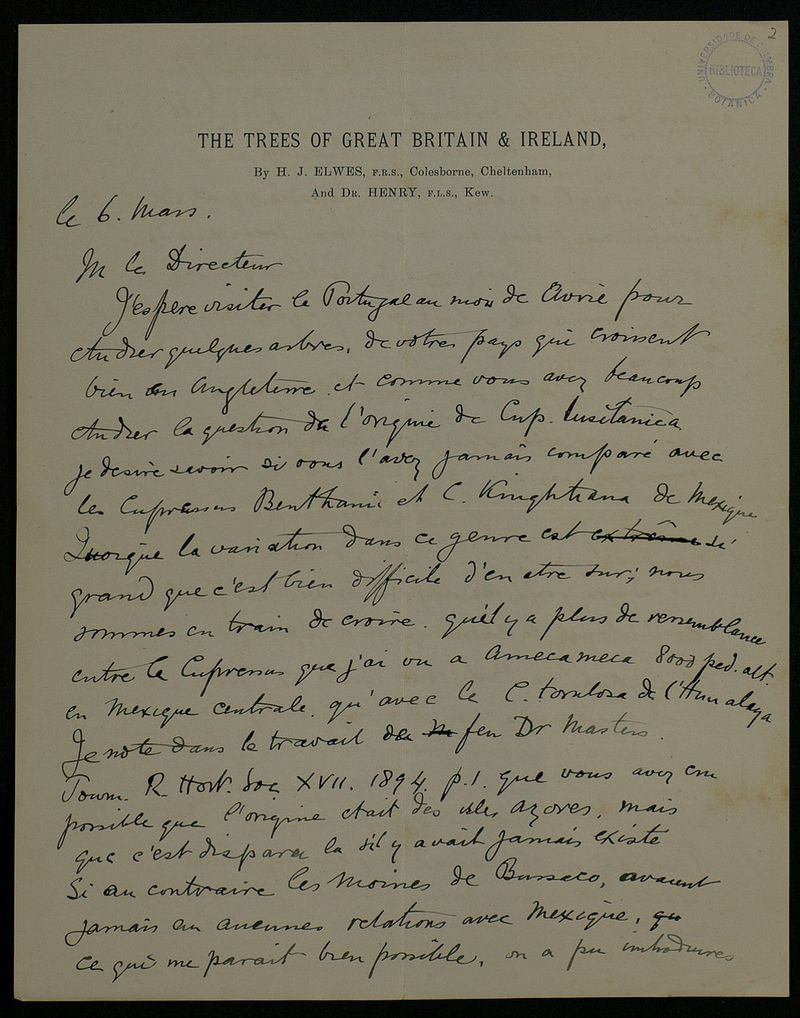 2
UNIVERSIDADE DE COIMBRA
BIBLIOTECA
BOTANICA
THE TREES OF GREAT BRITAIN & IRELAND,
By H. J. ELWES, F.R.S., Colesborne, Cheltenham,
And DR. HENRY, F.L.S., Kew.
le 6. Mars.
M le Directeur
J'espere visiter le Portugal au mois de Avril pour
etudier quelques arbres, de votre pays qui croissent
bien en Angleterre et comme vous avez beaucoup
etudier la question de l'origine de Cup. lusitanica
je desire savoir si vous l'avez jamais comparé avec
les Cupressus Benthami et C. Kinghtiana de Mexique
Quoique la variation dans ce genre est extrême si
grand que c'est bien difficile d'en etre sur; nous
sommes en train de croire. qu'il y a plus de ressemblance
entre le Cupressus que j'ai vu a Amecameca 8000 ped. alt.
en Mexique centrale. qu'avec le C. torulosa de l'Himalaya
Je note dans le travail de feu Dr Masters.
Journ. R. Hort. Soc XVII. 1894. p.1. que vous aviez cru
possible que l'origine etait des isles Azores, mais
que c'est disparu la s'il y avait jamais existe
Si au contraire les Moines de Bussaco, avaient
jamais eu aucunes relations avec Mexique,
ce qui me parait bien possible, on a pu introduires